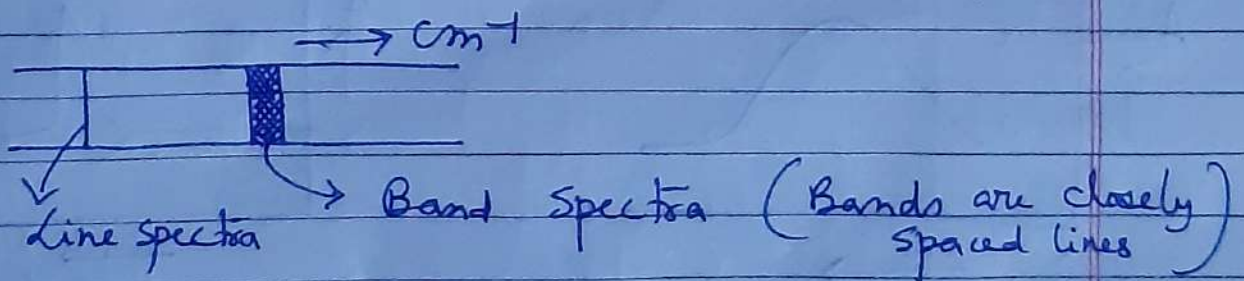 → cm⁻¹
Line spectra
→ Band spectra (Bands are closely
spaced lines)